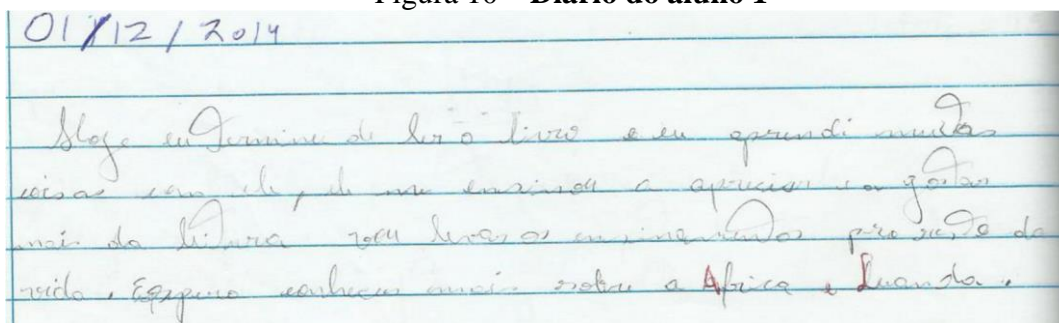 Figura 16 – Diário do aluno 1
01/12/2014
Hoje eu termine de ler o livro e eu aprendi muitas
coisas com ele, ele me ensinou a apreciar e a gostar
mais da leitura vou levar os ensinamentos pro resto da
vida. Espero conhecer mais sobre a Africa e Luanda.